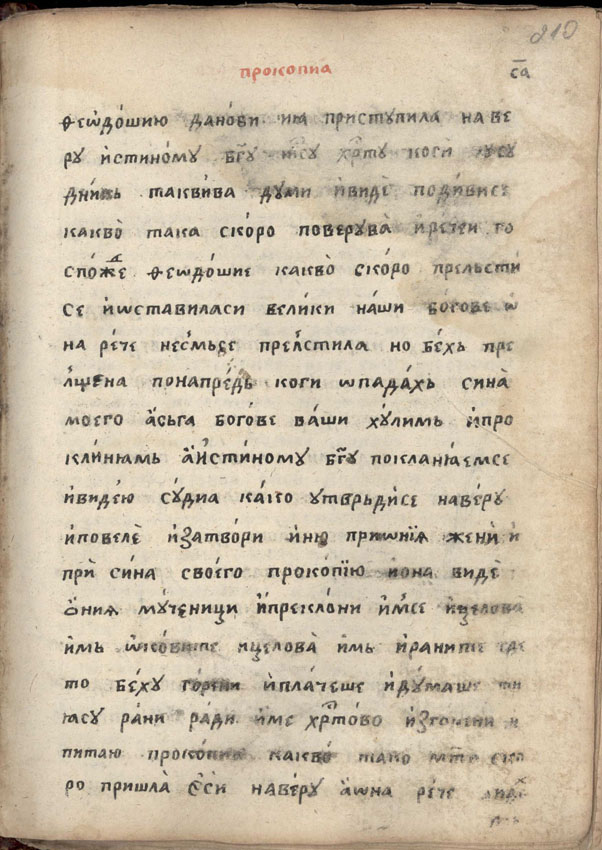 210
прокопиа
са
ѳеѡдо́шию дано́ви ина приступила на ве
ру и҆стиному бг҃у хрⷭ҇ту коги
таквива думи и҆виде подивисе
какво̀ така ско́ро поверува̀ и҆рече и го
спо́жⷣе ѳеѡдо́шие какво̀ ско́ро прельсти
се и҆ѡставиласи вели́ки на́ши бо́гове ѡ
на ре́че несмьсе прел҆стила но бе́хь пре
л҆щена понапре́дь коги ѡпада́хь сина̀
моего а҆сьга богове ва́ши ху́лимь и҆про
кли́нꙗмь а҆и҆стиному бг҃у покланꙗемсе
и҆виде́ю су́диа како утврьди́се наверу
и҆повелѐ и҆затво́ри и҆ню при ѡни́ꙗ жени̇ и҆
при̇ сина своего̀ проко́пїю и҆она видѐ
о҆ниꙗ му́ченици и҆прекло́ни и҆мсе и҆целова̀
имь ѡ҆ко́вите и҆целова̀ и҆мь и҆раните где
то бе́ху горени и҆пла́чеше и҆ду́маше
ра́ни ра́ди и҆ме хрⷭ҇то́во и҆
питаю проко́пиа какво̀ тако ско
ро пришла̀ є҆си наверу а҆ѡна ре́че